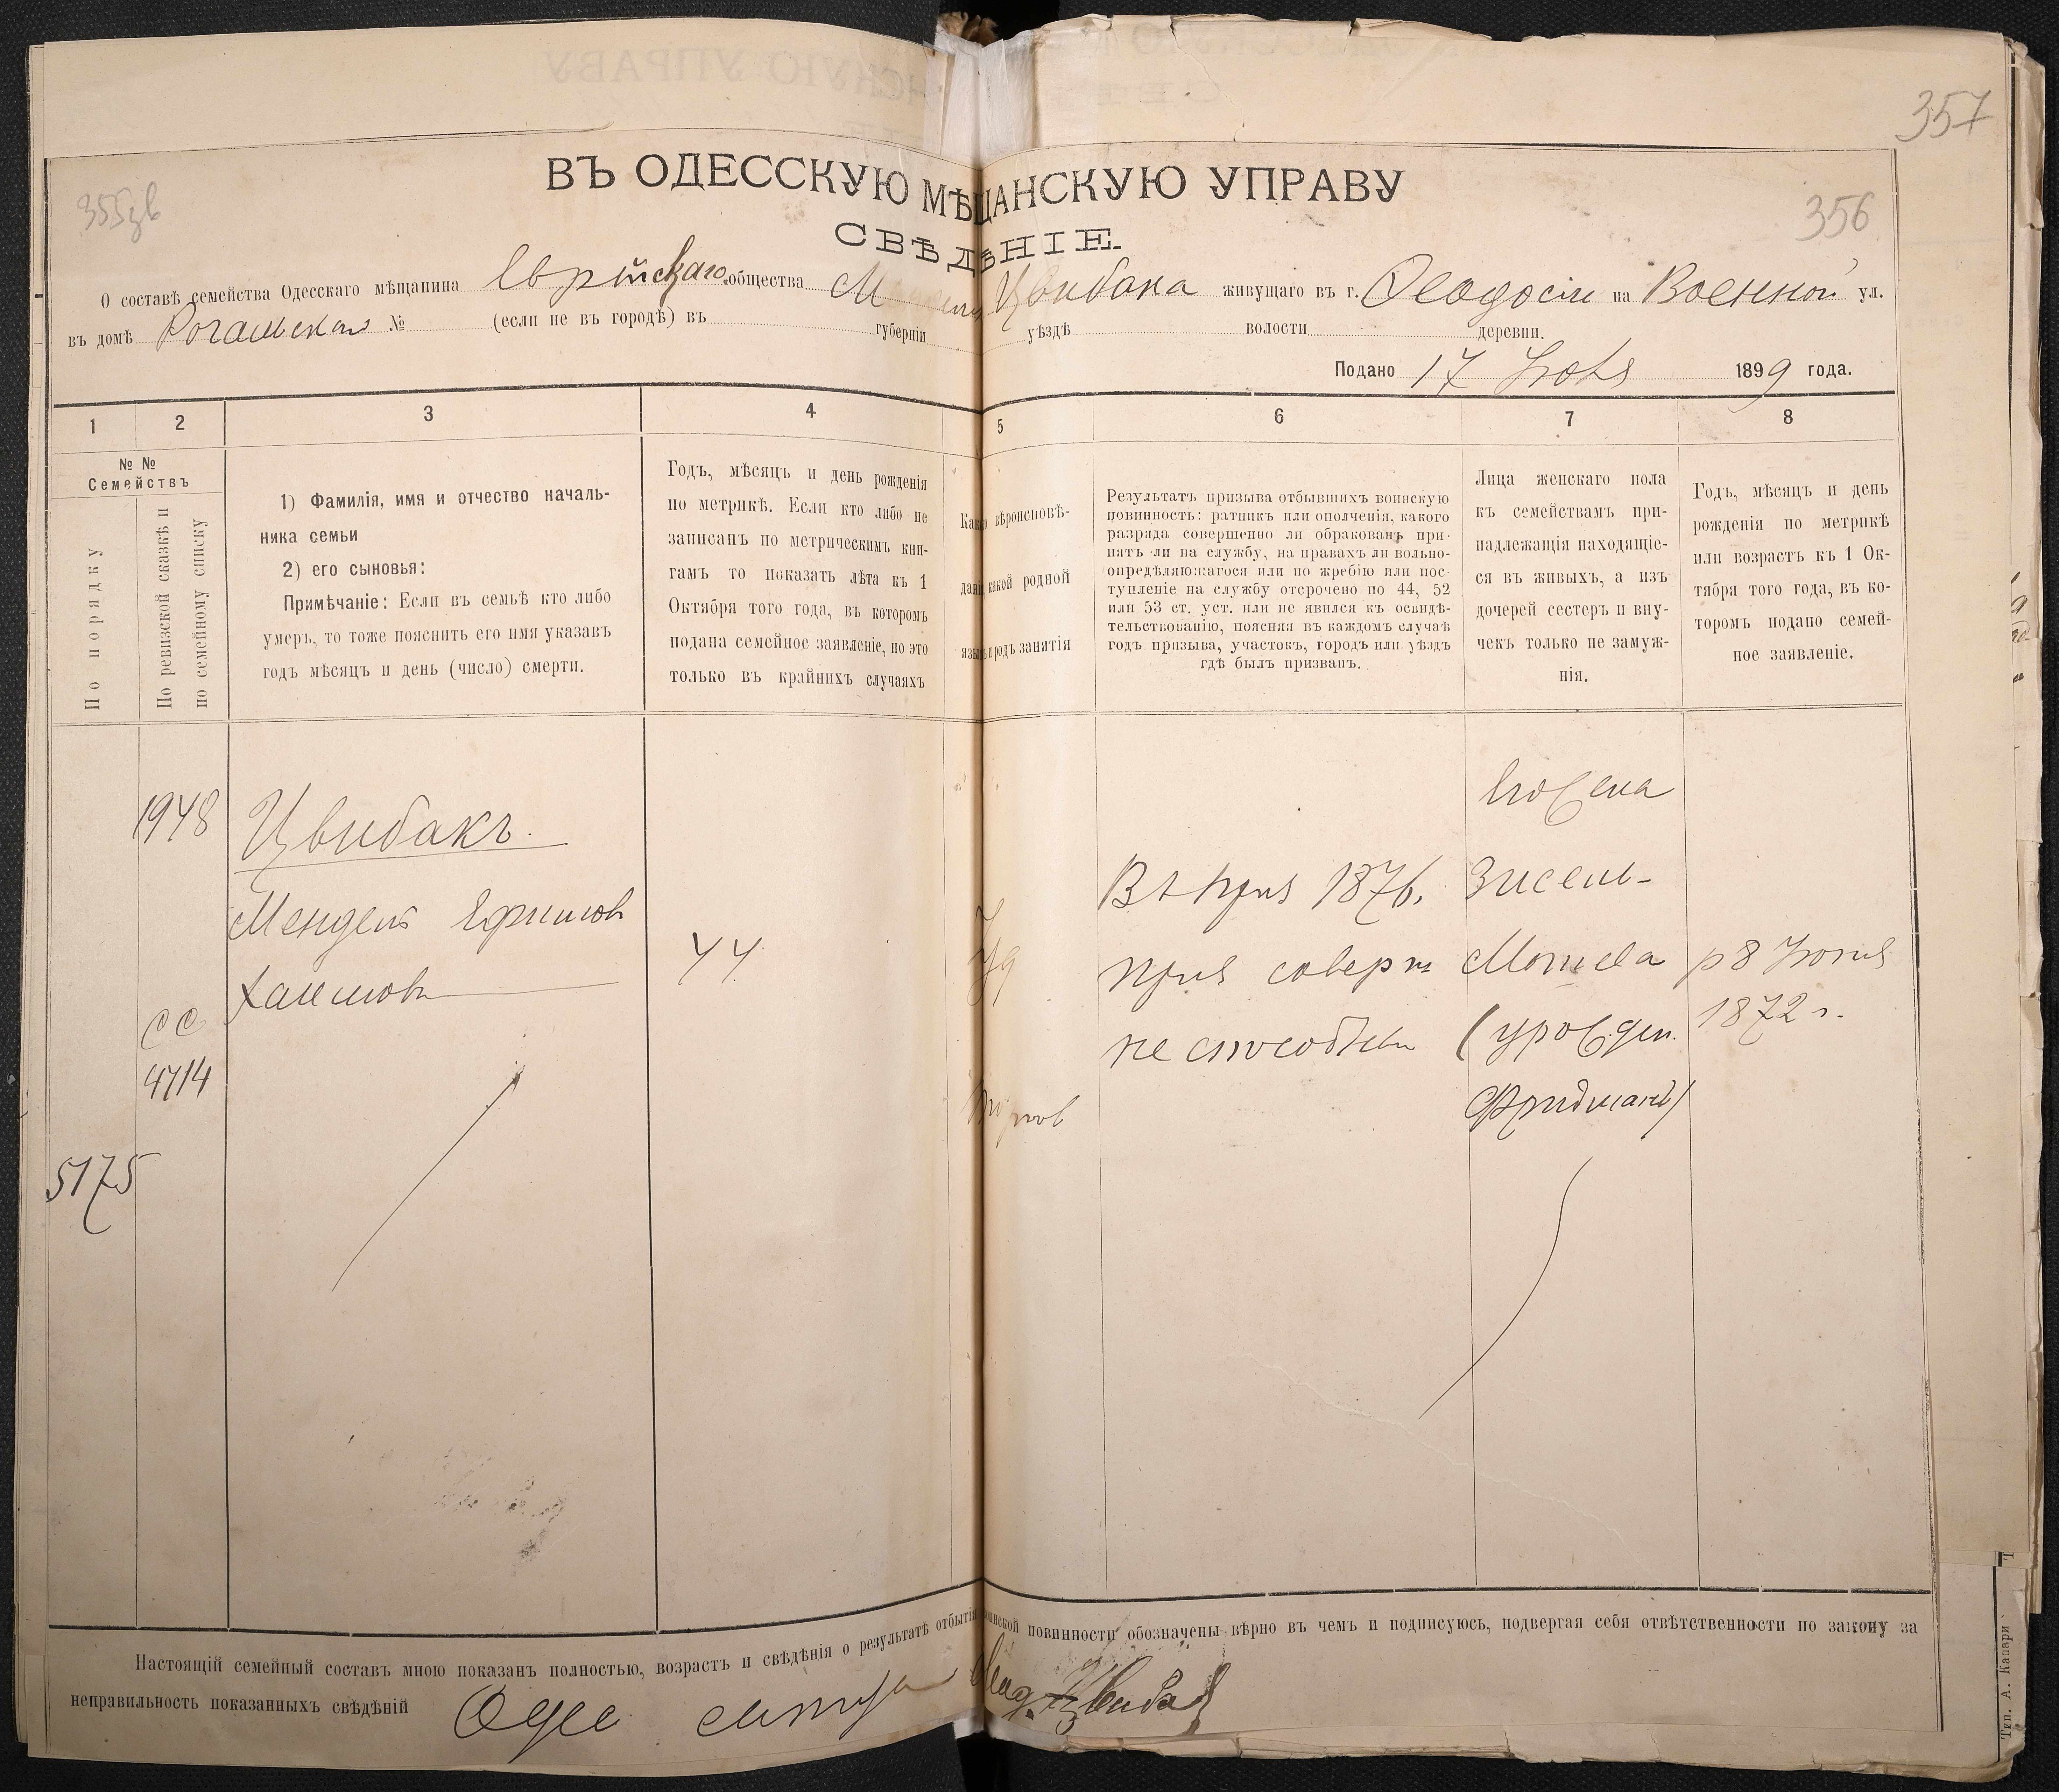 357
356
ВЪ ОДЕССКУЮ МѢЩАНСКУЮ УПРАВУ
СВѢДѢНІЕ.
О составѣ семейства Одесскаго мѣщанина Еврейскаго общества Цвибака живущаго въ г. Ѳеодосіи на Военной ул.
въ домѣ № (если не въ городѣ) въ губерніи уѣздѣ волости деревни.
Подано 17 1899 года.
1 2 3 4 5 6 7 8
№ №
Семействъ
По порядку
По ревизской сказкѣ и
по семейному списку
1) Фамилія, имя и отчество началь-
ника семьи
2) его сыновья:
Примѣчаніе: Если въ семьѣ кто либо
умеръ, то тоже пояснить его имя указавъ
годъ мѣсяцъ и день (число) смерти.
Годъ, мѣсяцъ и день рожденія
по метрикѣ. Если кто либо не
записанъ по метрическимъ кни-
гамъ то показать лѣта къ 1
Октября того года, въ которомъ
подана семейное заявленіе, но это
только въ крайнихъ случаяхъ
вѣроисповѣ-
какой родной
родъ занятія
Результатъ призыва отбывшихъ воинскую
повинность: ратникъ или ополченія, какого
разряда совершенно ли обракованъ при-
нятъ ли на службу, на правахъ ли вольно-
опредѣляющагося или по жребію или пос-
тупленіе на службу отсрочено по 44, 52
или 53 ст. уст. или не явился къ освидѣ-
тельствованію, поясняя въ каждомъ случаѣ
годъ призыва, участокъ, городъ или уѣздъ
гдѣ былъ призванъ.
Лица женскаго пола
къ семействамъ при-
надлежащія находящіе-
ся въ живыхъ, а изъ
дочерей сестеръ и вну-
чекъ только не замуж-
нія.
Годъ, мѣсяцъ и день
рожденія по метрикѣ
или возрастъ къ 1 Ок-
тября того года, въ ко-
торомъ подано семей-
ное заявленіе.
1948
Цвибакъ.
Мендель Ефимовъ
Хаимовъ
4714
5175
44
1876.
не способенъ
жена
Мошева
Фридманъ)
р 8
1872 г.
Настоящій семейный составъ мною показанъ полностью, возрастъ и свѣдѣнія о результатѣ отбытія воинской повинности обозначены вѣрно въ чемъ и подписуюсь, подвергая себя отвѣтственности по закону за
неправильность показанныхъ свѣдѣній
Тип. А. Капари